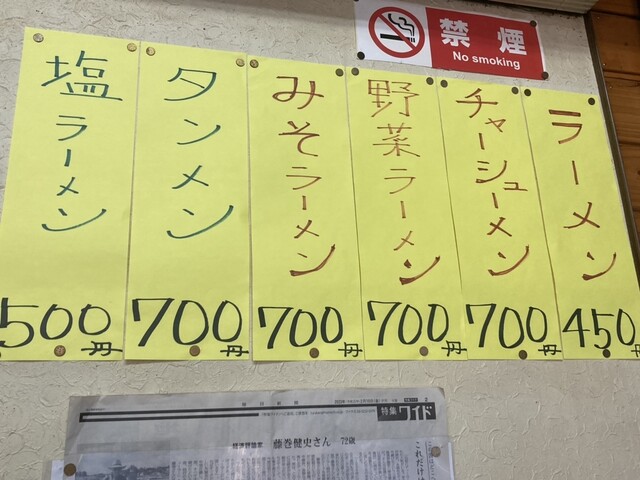 禁煙
No smoking
ラーメン
450円
チャーシューメン
700円
野菜ラーメン
700円
みそラーメン
700円
タンメン
700円
塩ラーメン
500円
特集ワイド
藤巻健史さん 72歳
これだけは